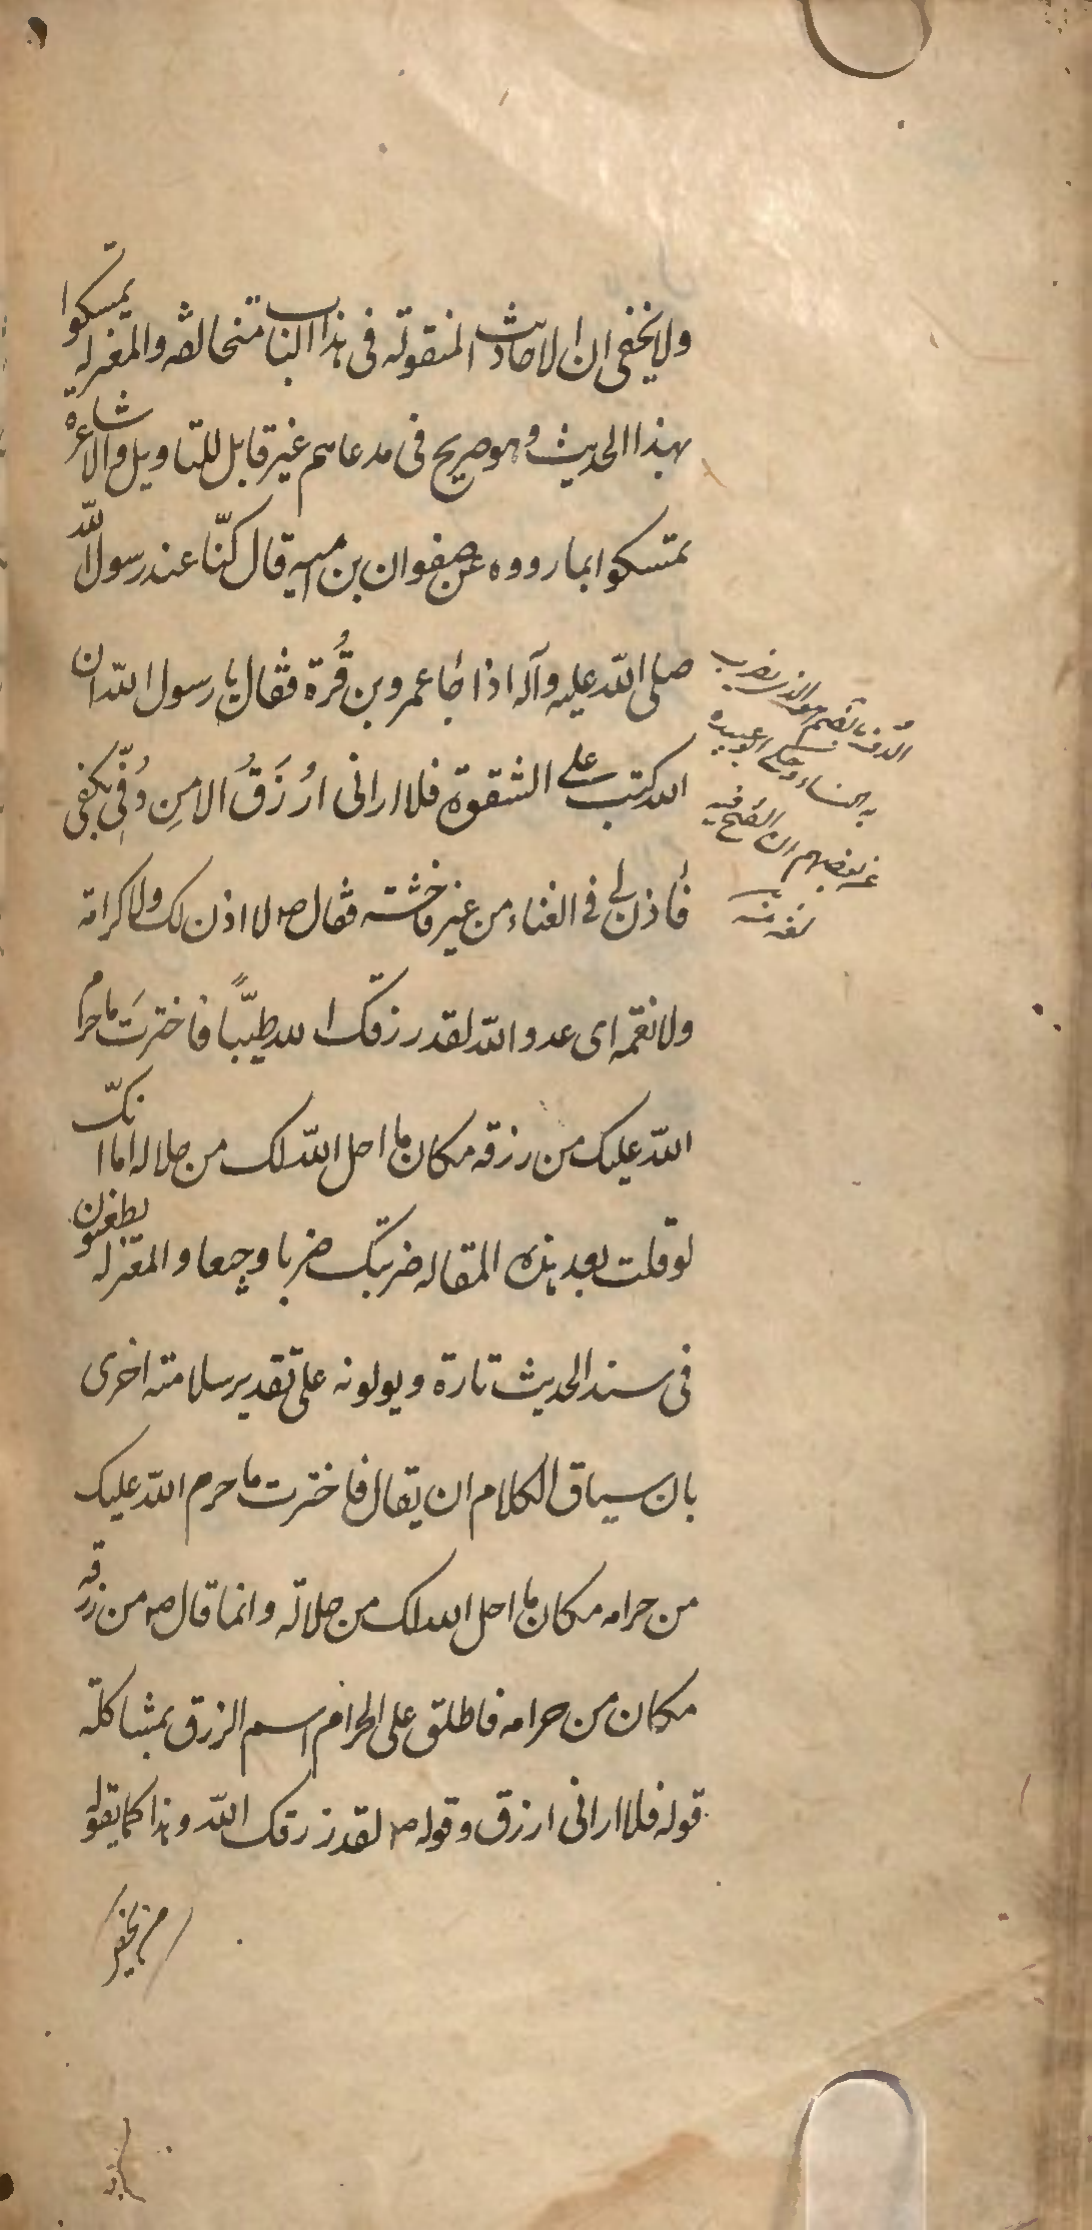 ولا يخفى ان الاحاديث المنقولة فى هذا الباب متخالفه والمعتزله تمسكوا
بهذا الحديث وهو صريح فى مدعاهم غير قابل للتاويل والاشاعرة
تمسكوا بما رووه عن صفوان بن اميه قال كنّا عند رسول الله
صلى الله عليه وآله اذا جاء عمرو بن قُرة فقال يا رسول الله ان
الله كتب على الشقوة فلا ارانى اُرزَقُ الا مِن دُفّى بكفى
فأذن لى فى الغناء من غير فاحشته فقال ص لا اذن لك ولا كرامة
ولا نعمه اى عدو الله لقد رزقك الله طيّبًا فاخترتَ ما حرم
الله عليك من رزقه مكان ما احل الله لك من حلاله اما انكّ
لو قلت بعد هذه المقاله ضربتك ضربا وجيعا والمعتزله يطعنون
فى سند الحديث تارة ويولونه على تقدير سلامته اخرى
بان سياق الكلام ان يقال فاخترت ما حرم الله عليك
من حرامه مكان ما احل الله لك من حلاله وانما قال ص من رزقه
مكان من حرامه فاطلق على الحرام اسم الرزق بمشاكلة
قوله فلا ارانى ارزق وقوله ص لقد رزقك الله وهذا كما يقوله
الدف بالضم هو الذى يضرب
به النساء وحكى ابو عبيده
عن بعضهم ان الفتح فيه
لغة